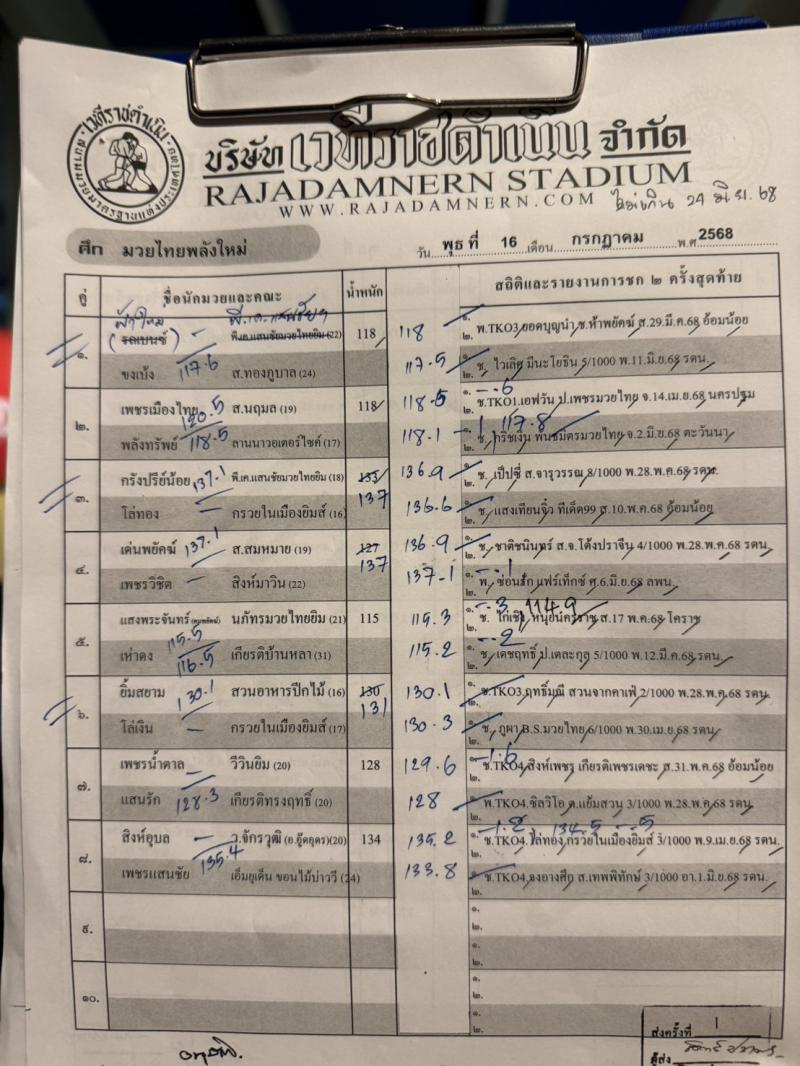 เวทีราชดำเนิน
บริษัท เวทีราชดำเนิน จำกัด
RAJADAMNERN STADIUM
WWW.RAJADAMNERN.COM ไม่เกิน 24 มิ.ย. 68
ศึก มวยไทยพลังใหม่
วัน พุธ ที่ 16 เดือน กรกฎาคม พ.ศ. 2568
คู่ ชื่อนักมวยและคณะ น้ำหนัก สถิติและรายงานการชก ๒ ครั้งสุดท้าย
ฟ้าใหม่
๑. (รถเบนซ์) พีเค.แสนชัยมวยไทยยิม (22) 118 118 ๑. พ.TKO3 ยอดบุญนำ ช.ห้าพยัคฆ์ ส.29.มี.ค.68 อ้อมน้อย
๒.
ขงเบ้ง 117.6 ส.ทองภูบาล (24) 117.5 ๑. ช. ไวเลิศ มีนะโยธิน 5/1000 พ.11.มิ.ย.68 รดน.
๒.
๒. เพชรเมืองไทย 120.5 ส.นฤมล (19) 118 118.5 ๑. ช.TKO1.เอฟวัน ป.เพชรมวยไทย จ.14.เม.ย.68 นครปฐม
๒.
พลังทรัพย์ 118.5 ลานนาวอเตอร์ไซค์ (17) 118.1 117.8
ช. คริชเงิน พันธมิตรมวยไทย จ.2.มิ.ย.68 ตะวันนา
๓. กรังปรีย์น้อย 137.1 พี.เค.แสนชัยมวยไทยยิม (18) 137 136.9 ๑. ช. เป๊ปซี่ ส.จารุวรรณ 8/1000 พ.28.พ.ค.68 รดน.
๒.
โล่ทอง กรวยในเมืองยิมส์ (16) 136.6 ๑. ช. แสงเทียนจิ๋ว ทีเด็ด99 ส.10.พ.ค.68 อ้อมน้อย
๒.
๔. เด่นพยัคฆ์ 137.1 ส.สมหมาย (19) 127 137 136.9 ๑. ช. ชาติชนินทร์ ส.จ.โต้งปราจีน 4/1000 พ.28.พ.ค.68 รดน.
๒.
เพชรวิชิต สิงห์มาวิน (22) 137.1 ๑. พ. ซ่อนรัก แฟร์เท็กซ์ ศ.6.มิ.ย.68 ลพน.
๒.
๕. แสงพระจันทร์ นภัทรมวยไทยยิม (21) 115 115.3 114.9
๑. ช. ไก่เชิง หนุ่ยนครราช ส.17 พ.ค.68 โคราช
๒.
115.5
เห่าดง 116.5 เกียรติบ้านหลา (31) 115.2 ๑. ช. เดชฤทธิ์ ป.เตละกุล 5/1000 พ.12.มี.ค.68 รดน.
๒.
๖. ยิ้มสยาม 130.1 สวนอาหารปีกไม้ (16) 130 131 130.1 ๑. ช.TKO3.ฤทธิ์มุณี สวนจากคาเฟ่ 2/1000 พ.28.พ.ค.68 รดน.
๒.
โล่เงิน กรวยในเมืองยิมส์ (17) 130.3 ๑. ช. ภูผา B.S.มวยไทย 6/1000 พ.30.เม.ย.68 รดน.
๒.
๗. เพชรน้ำตาล วีวินยิม (20) 128 129.6 ๑. ช.TKO4.สิงห์เพชร เกียรติเพชรเดชะ ส.31.พ.ค.68 อ้อมน้อย
๒.
แสนรัก 128.3 เกียรติทรงฤทธิ์ (20) 128 ๑. พ.TKO4.ซิลวิโอ ด.แย้มสวน 3/1000 พ.28.พ.ค.68 รดน.
๒.
134.5
๘. สิงห์อุบล ว.จักรวุฒิ (อ.อู๊ดอุดร)(20) 134 135.2 ๑. ช.TKO4.โล่ทอง กรวยในเมืองยิมส์ 3/1000 พ.9.เม.ย.68 รดน.
๒.
เพชรแสนชัย 135.4 เอ็มยูเด็น ขอนไม้บ่าววี (24) 133.8 ๑. ช.TKO4.องอางศึก ส.เทพพิทักษ์ 3/1000 อา.1.มิ.ย.68 รดน.
๒.
๙. ๑.
๒.
๑.
๒.
๑๐. ๑.
๒.
๑.
๒.
ส่งครั้งที่ 1
ผู้ส่ง